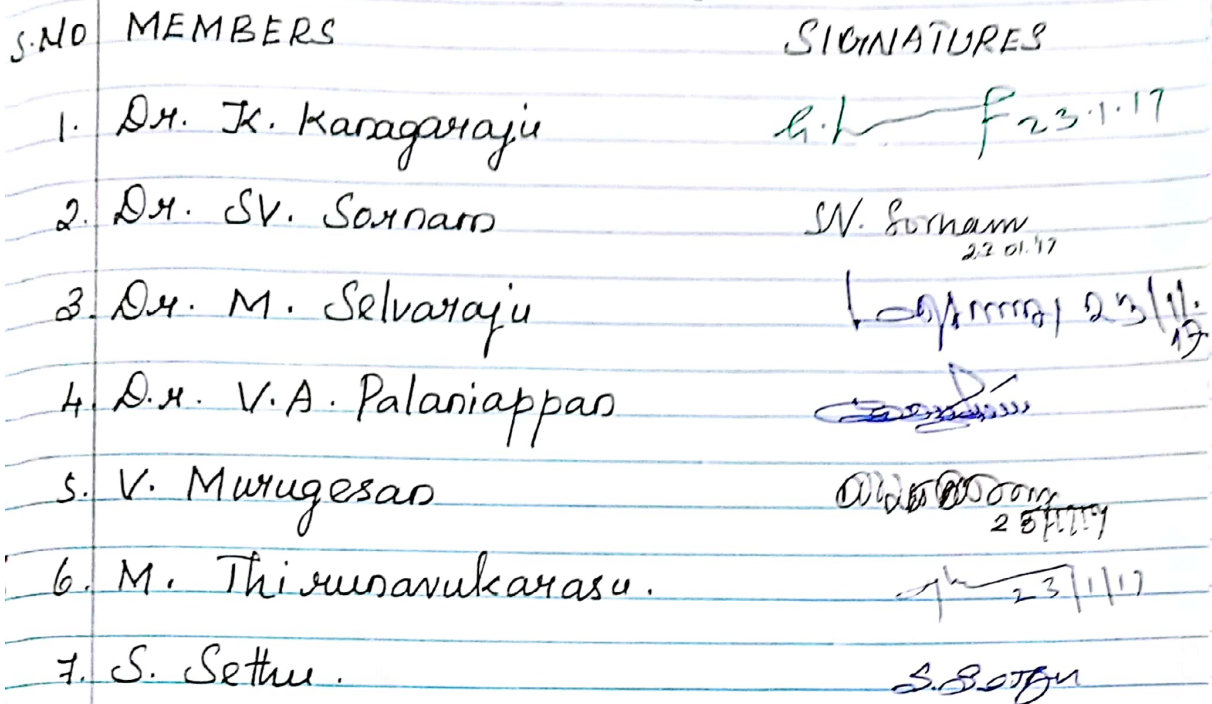 S.NO MEMBERS SIGNATURES
1. Dr. K. Kanagaraju 23.1.17
2. Dr. SV. Sornam SV. Sornam
23.01.17
3. Dr. M. Selvaraju 23/1/.
17
4. D.r. V.A. Palaniappan
5. V. Murugesan
6. M. Thirunavukarasu. 23/1/17
7. S. Sethu. S.சேது